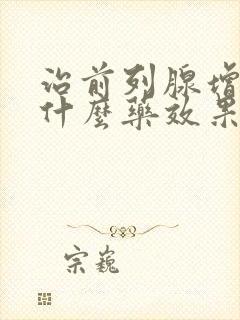 治前列腺增
什麼藥效果
宗巍